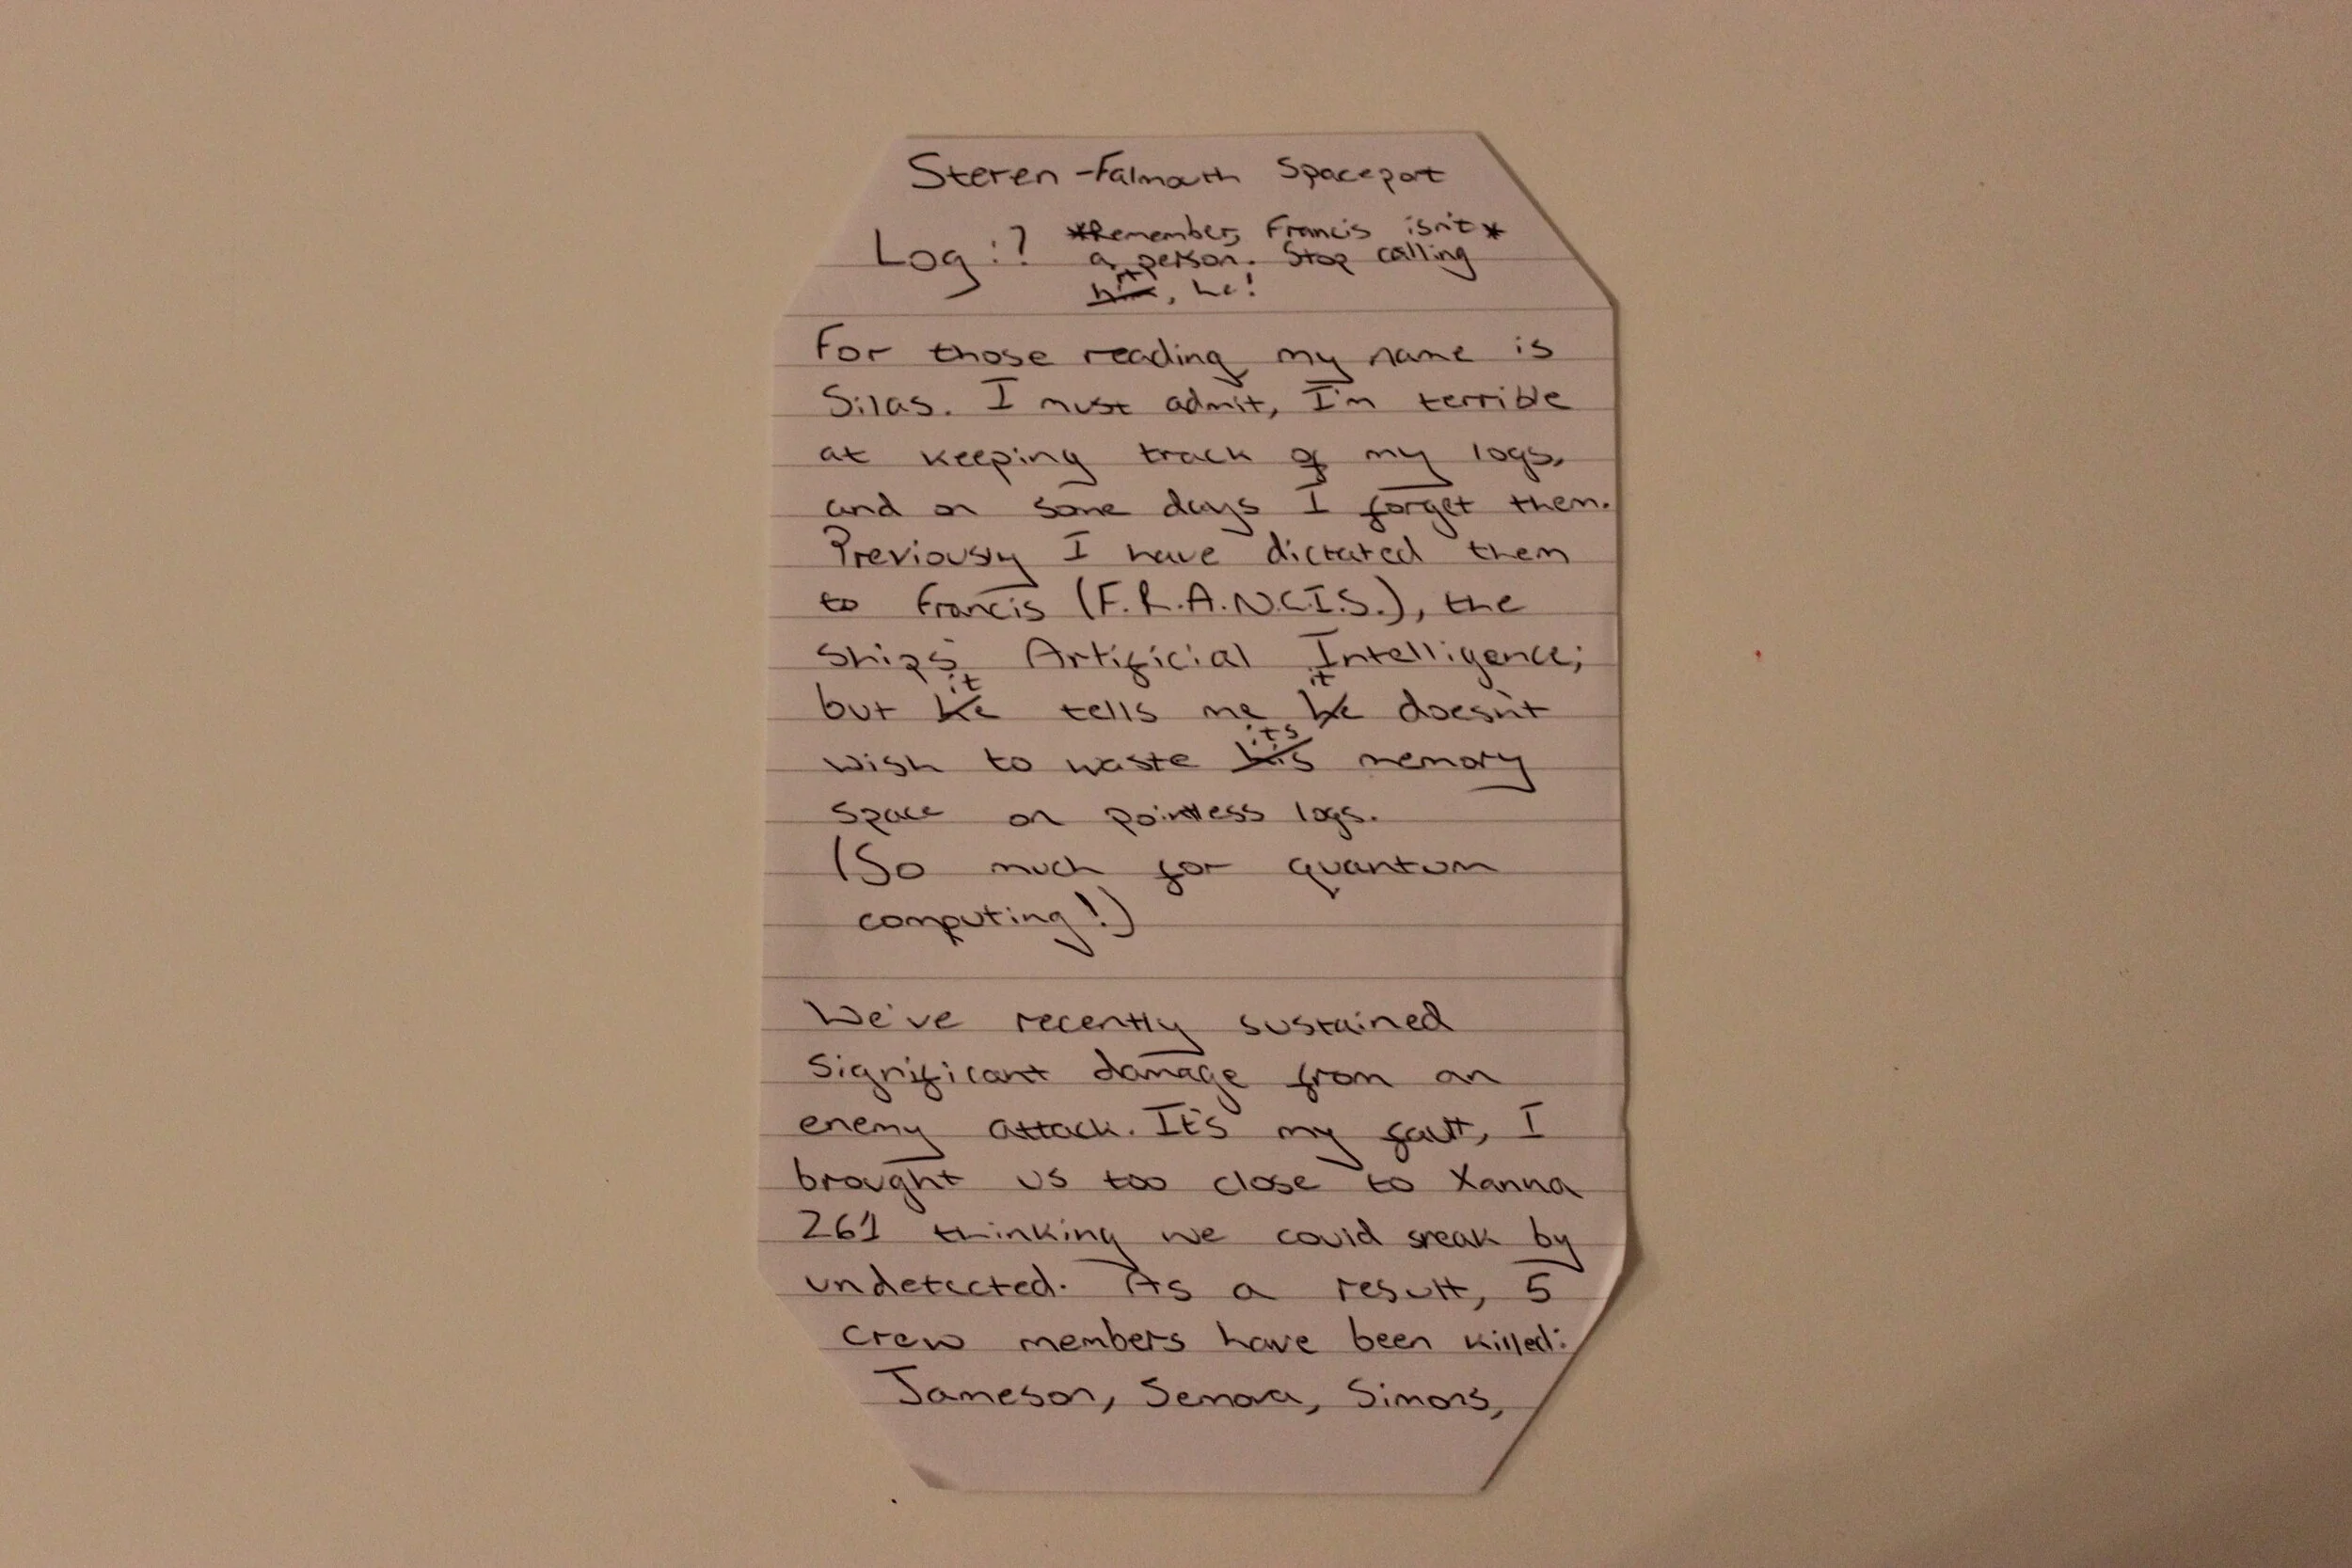 Steren-Falmouth Spaceport
Log:? *Remember, Francis isn't*
a person. Stop calling
it
him, he!
For those reading, my name is
Silas. I must admit, I'm terrible
at keeping track of my logs,
and on some days I forget them.
Previously I have dictated them
to Francis (F.R.A.N.C.I.S.), the
ships' Artificial Intelligence;
it it
but he tells me he doesn't
its
wish to waste his memory
space on pointless logs.
(So much for quantum
computing!)
We've recently sustained
significant damage from an
enemy attack. It's my fault, I
brought us too close to Xanna
261 thinking we could sneak by
undetected. As a result, 5
crew members have been killed:
Jameson, Senova, Simons,